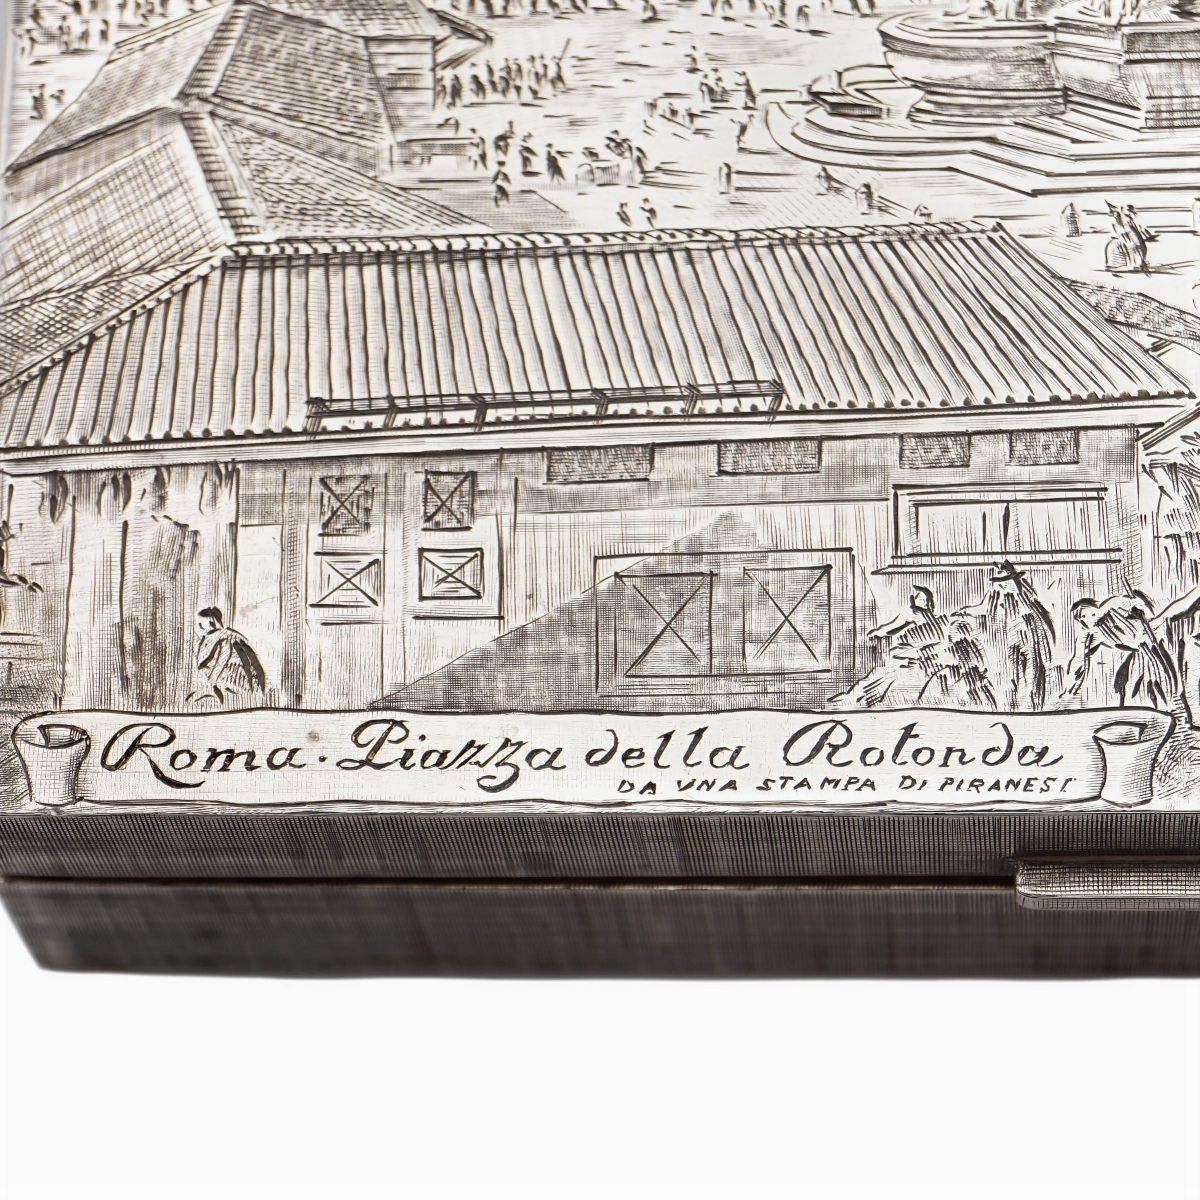 Roma · Piazza della Rotonda
DA UNA STAMPA DI PIRANESI